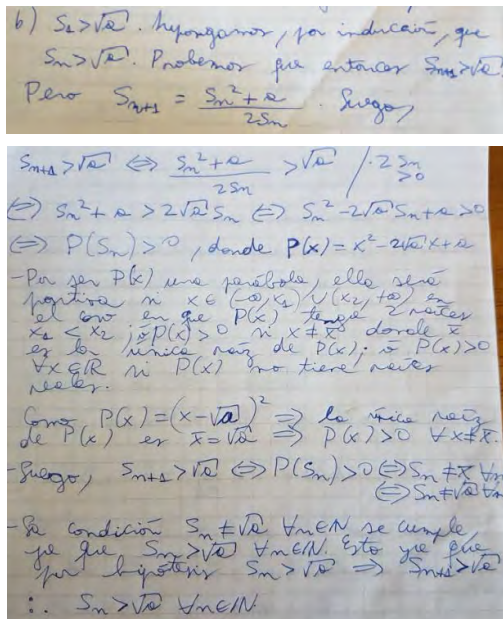 b) S₁>√a. Supongamos, por inducción, que
Sₙ>√a. Probemos que entonces Sₙ₊₁>√a
Pero Sₙ₊₁ = (Sₙ²+a)/(2Sₙ). Luego,
Sₙ₊₁>√a ⇔ (Sₙ²+a)/(2Sₙ) >√a /·2Sₙ >0
⇔ Sₙ²+a > 2√a Sₙ ⇔ Sₙ²-2√a Sₙ+a>0
⇔ P(Sₙ)>0, donde P(x)=x²-2√a x+a
-Por ser P(x) una parábola, ella será
positiva si x∈(-∞,x₁)∪(x₂,+∞) en
el caso en que P(x) tenga 2 raíces
x₁<x₂; ó P(x)>0 si x≠x̄ donde x̄
es la única raíz de P(x); ó P(x)>0
∀x∈ℝ si P(x) no tiene raíces
reales.
Como P(x)=(x-√a)² ⇒ la única raíz
de P(x) es x̄=√a ⇒ P(x)>0 ∀x≠x̄.
-Luego, Sₙ₊₁>√a ⇔ P(Sₙ)>0 ⇔ Sₙ≠x̄ ∀n
⇔ Sₙ≠√a ∀n
-La condición Sₙ≠√a ∀n∈ℕ se cumple
ya que Sₙ>√a ∀n∈ℕ. Esto ya que
por hipótesis Sₙ>√a ⇒ Sₙ₊₁>√a
∴ Sₙ>√a ∀n∈ℕ.